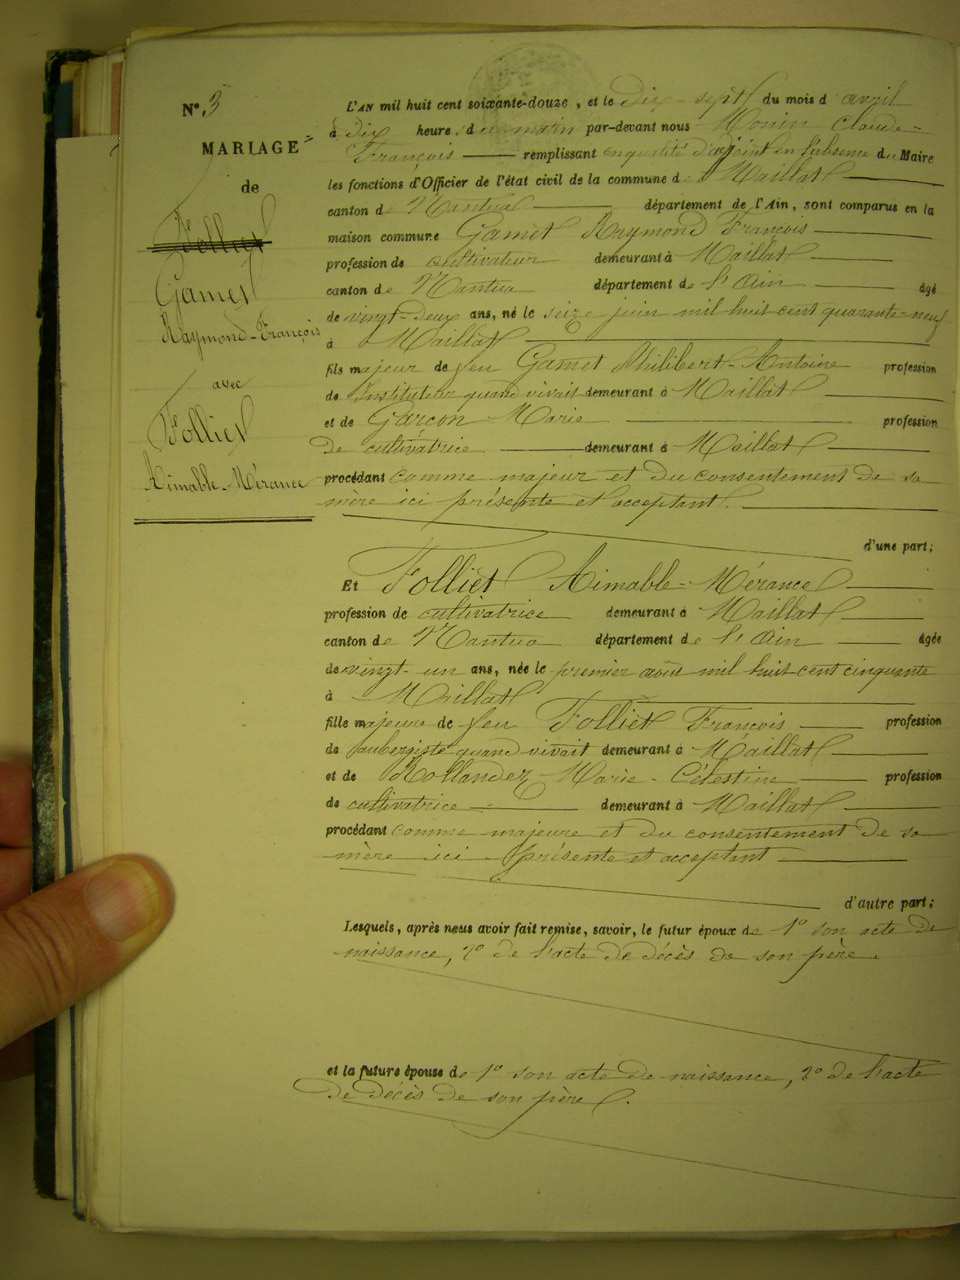 N° 3
MARIAGE
de
Folliet
Gamet
Raymond-François
avec
Folliet
Aimable-Mérance
L'AN mil huit cent soixante-douze, et le dix-sept du mois d'avril
à dix heure, du matin par-devant nous Monin Claude-
François remplissant en qualité d'adjoint en l'absence du Maire
les fonctions d'Officier de l'état civil de la commune de Maillat
canton de Nantua département de l'Ain, sont comparus en la
maison commune Gamet Raymond François
profession de cultivateur demeurant à Maillat
canton de Nantua département de l'Ain âgé
de vingt-deux ans, né le seize juin mil huit cent quarante-neuf
à Maillat
fils majeur de feu Gamet Philibert-Antoine profession
de Instituteur quand vivait demeurant à Maillat
et de Garcon Marie profession
De cultivatrice demeurant à Maillat
procédant comme majeur et du consentement de sa
mère ici présente et acceptant.
d'une part;
Et Folliet Aimable-Mérance
profession de cultivatrice demeurant à Maillat
canton de Nantua département de l'Ain âgée
de vingt-un ans, née le premier août mil huit cent cinquante
à Maillat
fille majeure de feu Folliet François profession
de aubergiste quand vivait demeurant à Maillat
et de Rollandez Marie-Célestine profession
de cultivatrice demeurant à Maillat
procédant comme majeure et du consentement de sa
mère ici présente et acceptant
d'autre part;
Lesquels, après nous avoir fait remise, savoir, le futur époux de 1° son acte de
naissance, 2° de l'acte de décès de son père.
et la future épouse de 1° son acte de naissance, 2° de l'acte
de décès de son père.